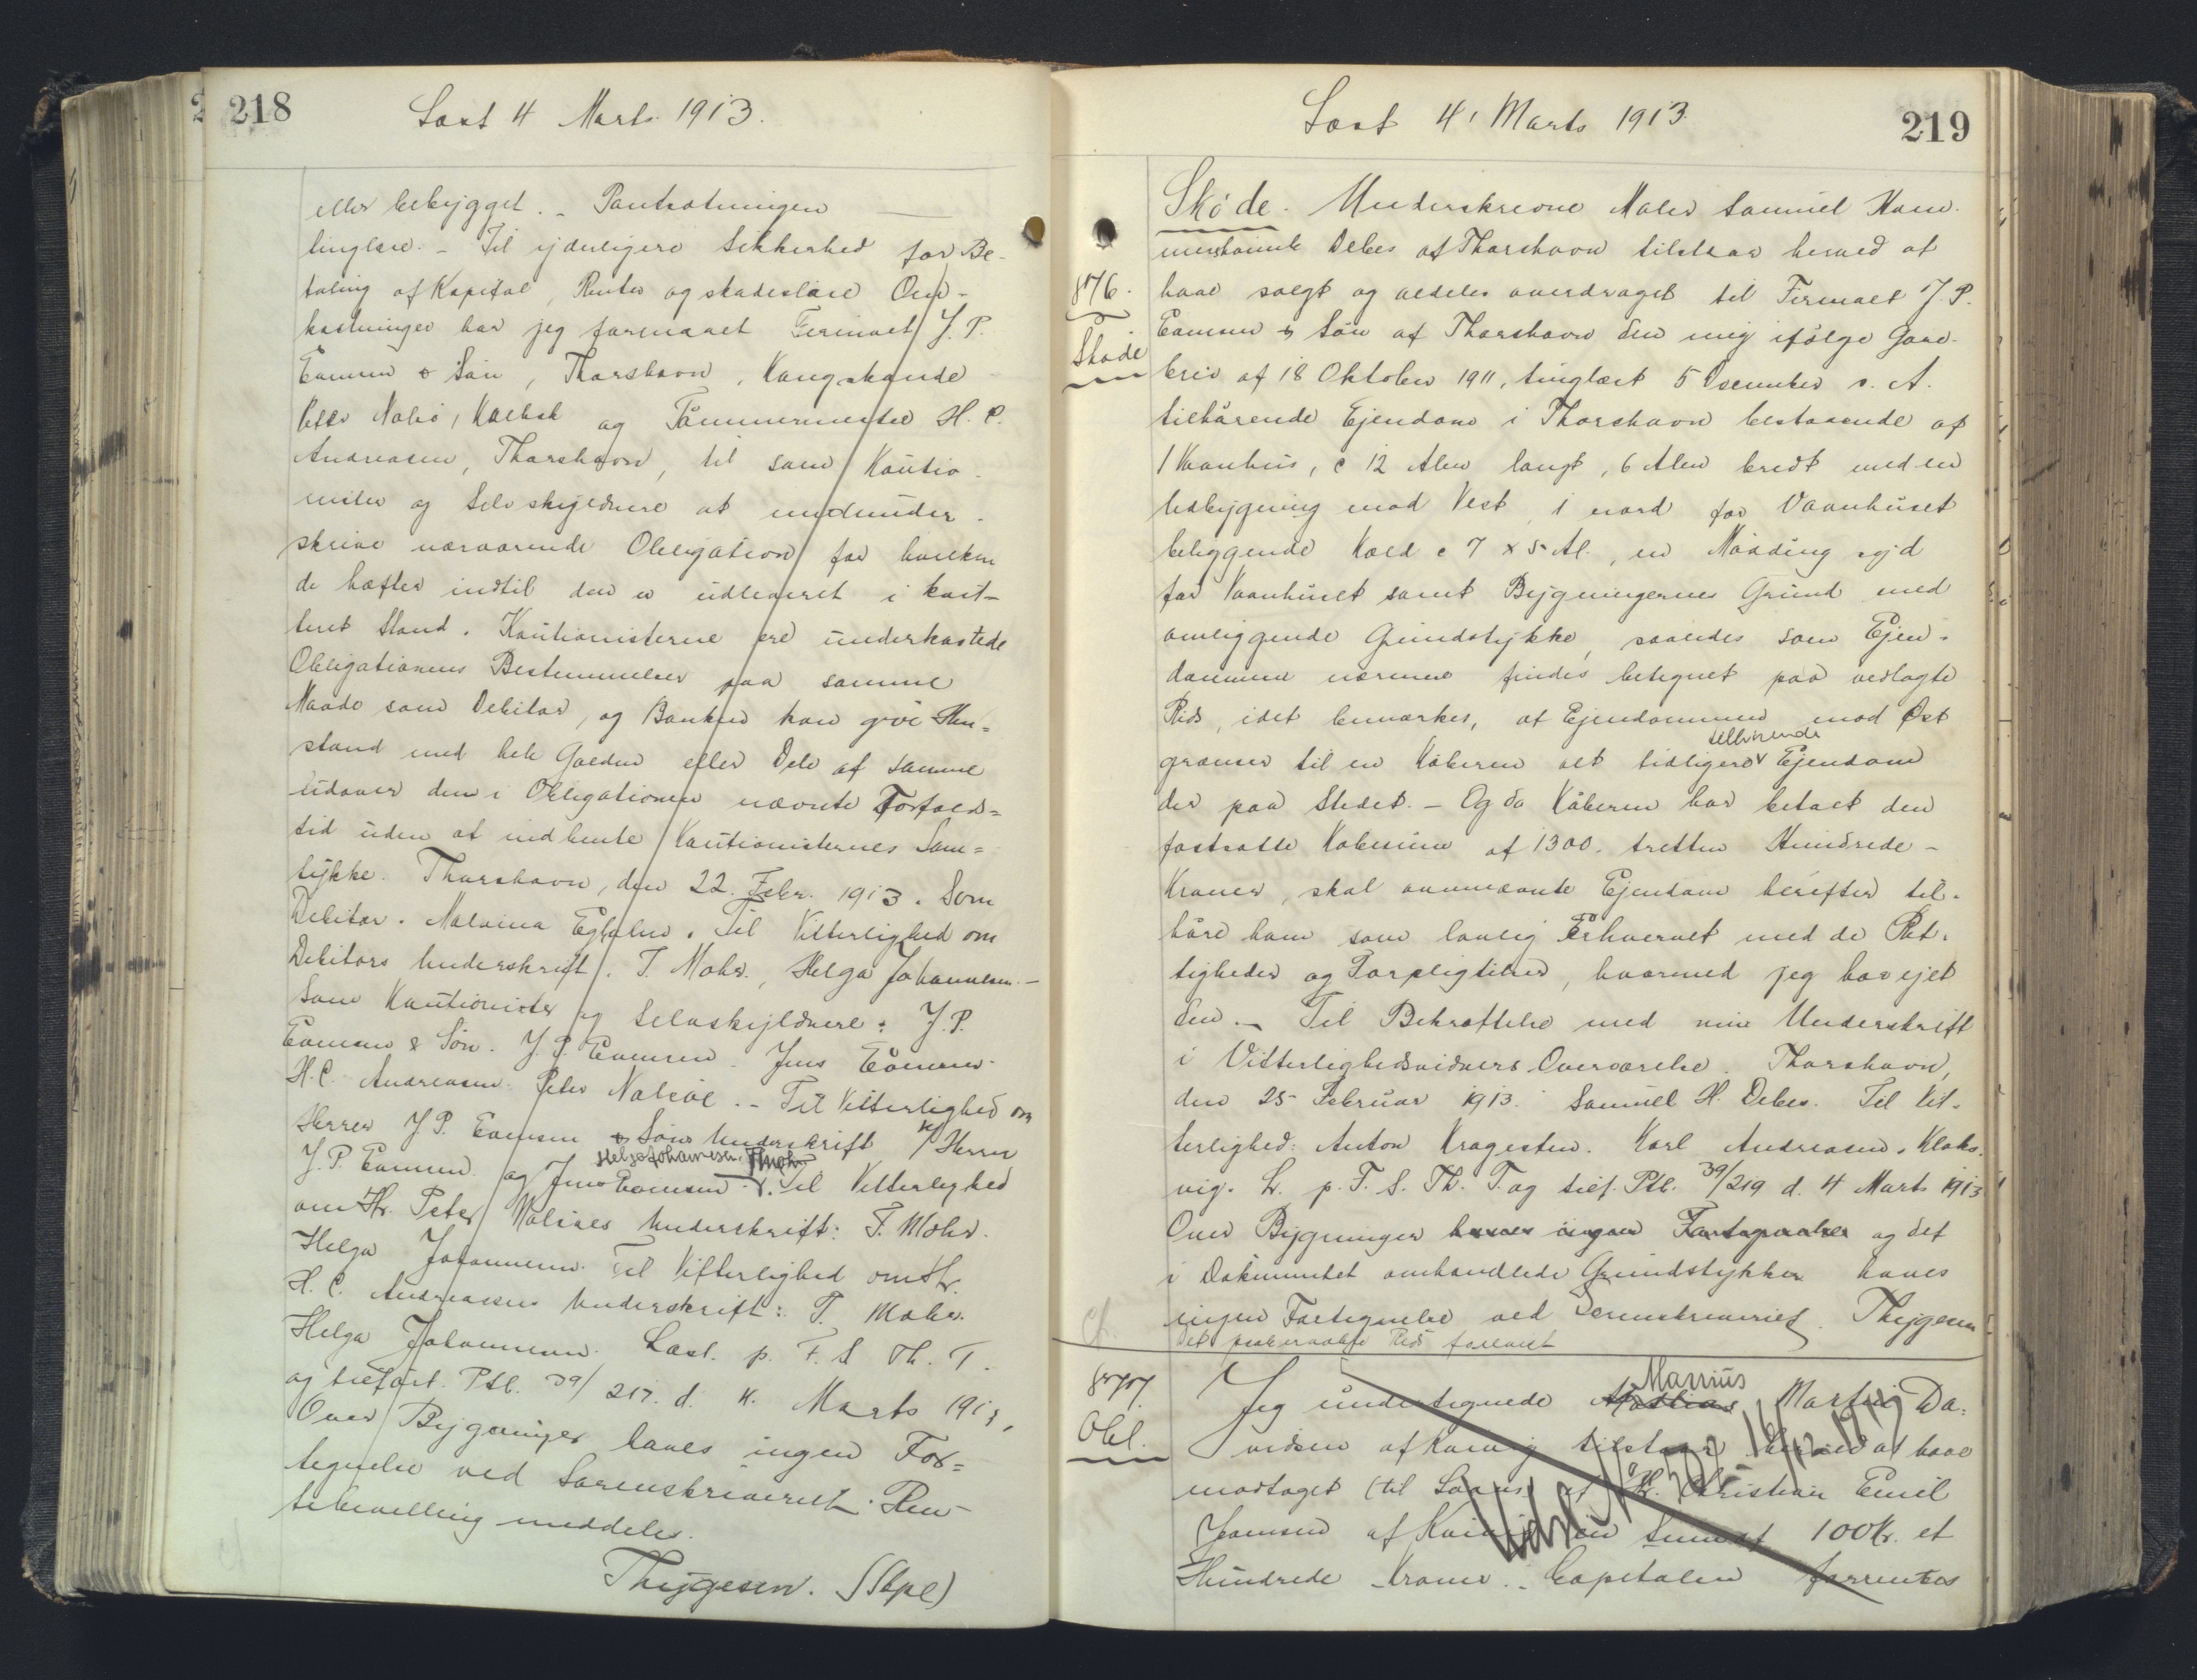 218
Læst 4 Marts 1913.
eller bebygget. - Pantsætningen
tinglæse. - Til yderligere Sikkerhed for Be-
taling af Kapital, Renter og skadesløse Om-
kostninger har jeg formaaet Firmaet J. P.
Eamsen & Søn, Thorshavn, Kongsbonde
Peter Nolsø, Kalbak og Tømmermester H. C.
Andreasen, Thorshavn, til som Kautio-
nister og Selvskyldnere at medunder-
skrive nærværende Obligation for hvilken
de hæfter indtil den er udleveret i kvit-
teret Stand. Kautionisterne ere underkastede
Obligationens Bestemmelser paa samme
Maade som Debitor, og Banken kan give Hen=
stand med hele Gælden eller Dele af samme
udover den i Obligationen nævnte Forfalds=
tid uden at indhente Kautionisternes Sam=
tykke. Thorshavn, den 22. Febr. 1913. Som
Debitor. Malvina Egholm. Til Vitterlighed om
Debitors Underskrift. T. Mohr., Helga Johannesen. -
Som Kautionister og Selvskyldnere: J. P.
Eamsen & Søn. J. P. Eamsen. Jens Eamsen.
H. C. Andreasen. Peter Nolsøe. - Til Vitterlighed om
Herrer J P. Eamsen & Søns Underskrift Herrer
Helga Johannesen. T Mohr
J. P. Eamsen og Jens Eamsen. Til Vitterlighed
om Hr. Peter Nolsøes Underskrift: T. Mohr.
Helga Johannesen. Til Vitterlighed om Hr.
H. C. Andreasens Underskrift: T. Mohr.
Helga Johannesen. Læst. p. F. S Th. T.
og tilført. Ptb. 39/217. d. 4. Marts 1913,
Over Bygninger haves ingen For=
tegnelse ved Sorenskriveriet. Ren-
tebevilling meddeles.
Thygesen. (Stpl)
219
Læst 4, Marts 1913.
Skøde. Underskrevne Maler Samuel Ham-
mershaimb Debes af Thorshavn tilstaar herved at
876. have solgt og aldeles overdraget til Firmaet J. P.
Eamsen & Søn af Thorshavn den mig ifølge Gave-
Skøde brev af 18 Oktober 1911, tinglæst 5 December s. A.
tilhørende Ejendom i Thorshavn bestaaende af
1 Vaanhus, c 12 Alen langt, 6 Alen bredt med en
Udbygning mod Vest, 1 nord for Vaanhuset
beliggende Kæld c 7 x 5 Al., en Mødding syd
for Vaanhuset samt Bygningernes Grund med
omliggende Grundstykke, saaledes som Ejen-
dommen nærmere findes betegnet paa vedlagte
Rids, idet bemærkes, at Ejendommen mod Øst
tilhørende
grænser til en Køberen alt tidligere Ejendom
der paa Stedet. - Og da Køberen har betalt den
fastsatte Købesum af 1300. tretten Hundrede -
Kroner, skal ovennævnte Ejendom herefter til-
høre ham som lovlig Erhvervet med de Ret-
tigheder og Forpligtelser, hvormed jeg har ejet
den. - Til Bekræftelse med min Underskrift
i Vitterlighedsvidners Overværelse. Thorshavn,
den 25 Februar 1913. Samuel H. Debes. Til Vit-
terlighed: Anton Kragesteen. Karl Andreasen, Klaks-
vig. L. p. F. S. Th. T. og tilf. Ptb. 39/219 d. 4 Marts 1913
Over Bygninger haves ingen og det
i Dokumentet omhandlede Grundstykker haves
ingen Fortegnelse ved Sorenskriveriet. Thygesen
Det Rids forevist
877.
Marius
Jeg undertegnede Mathias Martin Da-
Obl.
vidsen af Kunvig tilstaar herved at have
modtaget (til Laans) af Hr. Christian Emil
Joensen af en Sum af 100 Kr. et
Hundrede Kroner. - Capitalen forrentes